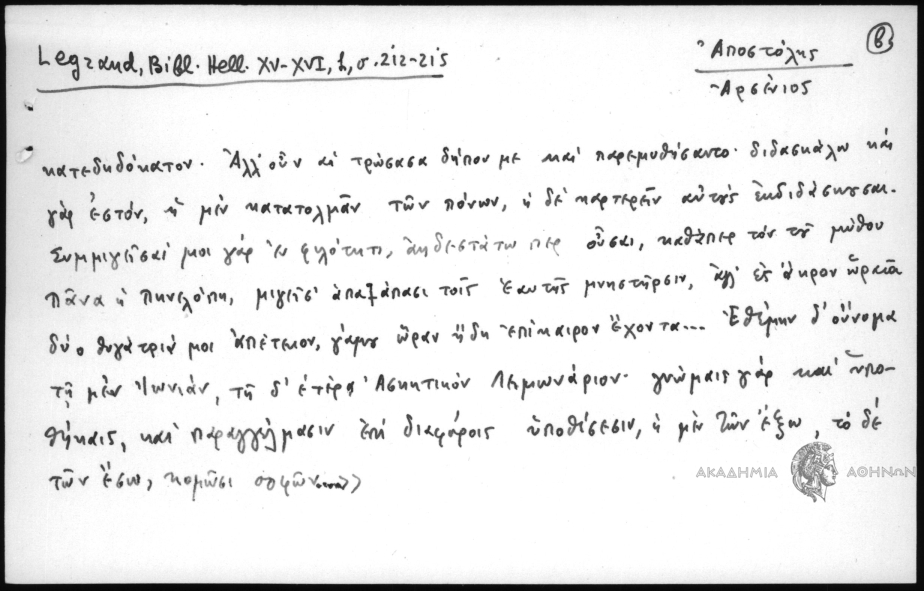 Legrand, Bibl. Hell. XV-XVI, 1, σ. 212-215
Ἀποστόλης
Ἀρσένιος
β
κατεδηδόκατον. Ἀλλ' οὖν αἱ τρώσασαι δήπου με καὶ παρεμυθήσαντο· διδασκάλω καὶ
γάρ ἐστόν, ἡ μὲν κατατολμᾶν τῶν πόνων, ἡ δὲ καρτερεῖν αὐτοὺς ἐκδιδάσκουσαι.
Συμμιγεῖσαί μοι γὰρ ἐν φιλότητι, ἀηδεστάτω περ οὖσαι, καθάπερ τὸν τοῦ μύθου
Πᾶνα ἡ Πηνελόπη, μιγεῖσ' ἁπαξάπασι τοῖς ἑαυτῆς μνηστῆρσιν, ἀλλ' ἐς ἄκρον ὡραῖα
δύο θυγάτριά μοι ἀπέτεκον, γάμου ὥραν ἤδη ἐπίκαιρον ἔχοντα... Ἐθέμην δ' οὔνομα
τῇ μὲν Ἰωνιάν, τῇ δ' ἑτέρᾳ Ἀσκητικὸν Λειμωνάριον· γνώμαις γὰρ καὶ ὑπο-
θήκαις, καὶ παραγγέλμασιν ἐπὶ διαφόροις ὑποθέσεσιν, ἡ μὲν τῶν ἔξω, τὸ δὲ
τῶν ἔσω, κομῶσι σοφῶν
ΑΚΑΔΗΜΙΑ ΑΘΗΝΩΝ